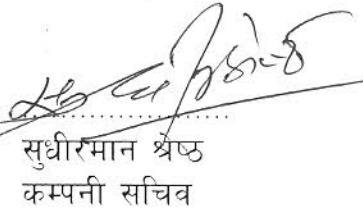 सुधीरमान श्रेष्ठ
कम्पनी सचिव